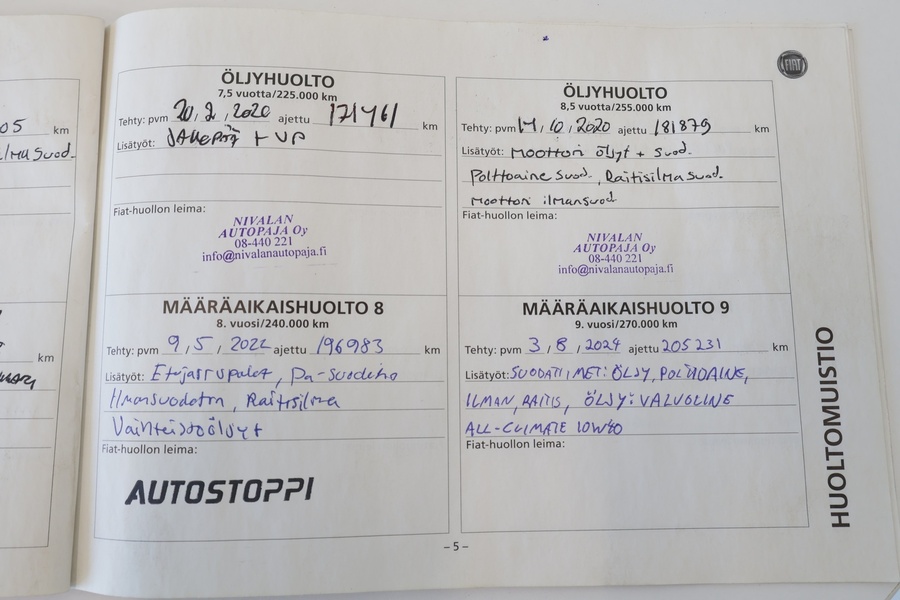 05 km
ÖLJYHUOLTO
7,5 vuotta/225.000 km
Tehty: pvm 20, 2, 2020 ajettu 171461 km
Lisätyöt: JAKOPÄÄ + VP
Fiat-huollon leima:
NIVALAN
AUTOPAJA Oy
08-440 221
info@nivalanautopaja.fi
MÄÄRÄAIKAISHUOLTO 8
8. vuosi/240.000 km
Tehty: pvm 9, 5, 2022 ajettu 196983 km
Lisätyöt: Etujarrupalat, pa-suodatin
Ilmansuodatin, Raitisilma
Vaihteistoöljyt
Fiat-huollon leima:
AUTOSTOPPI
km
FIAT
ÖLJYHUOLTO
8,5 vuotta/255.000 km
Tehty: pvm 14, 10, 2020 ajettu 181879 km
Lisätyöt: Moottori öljyt + suod.
Polttoaine suod. , Raitisilmasuod.
Moottori ilmansuod
Fiat-huollon leima:
NIVALAN
AUTOPAJA Oy
08-440 221
info@nivalanautopaja.fi
MÄÄRÄAIKAISHUOLTO 9
9. vuosi/270.000 km
Tehty: pvm 3, 8, 2024 ajettu 205231 km
Lisätyöt: SUODATTIMET: ÖLJY, POLTTOAINE,
ILMAN, RAITIS, ÖLJY: VALVOLINE
ALL-CLIMATE 10W40
Fiat-huollon leima:
HUOLTOMUISTIO
– 5 –